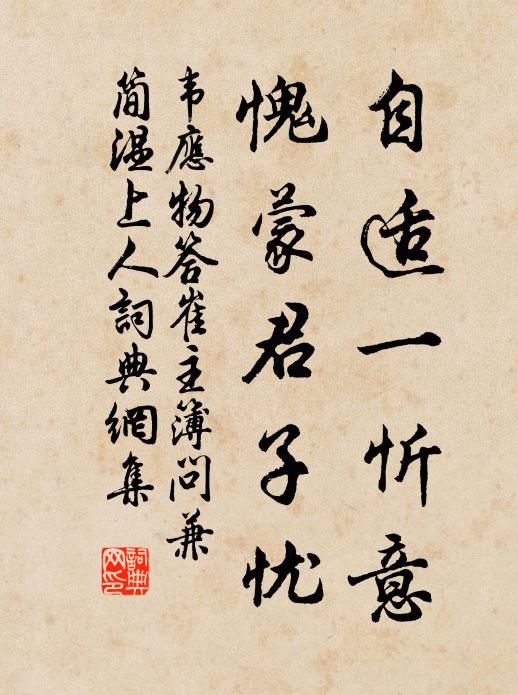 自适一忻意
愧蒙君子忧
韦應物答崔主簿问兼
简温上人詞典網集
詞典网印